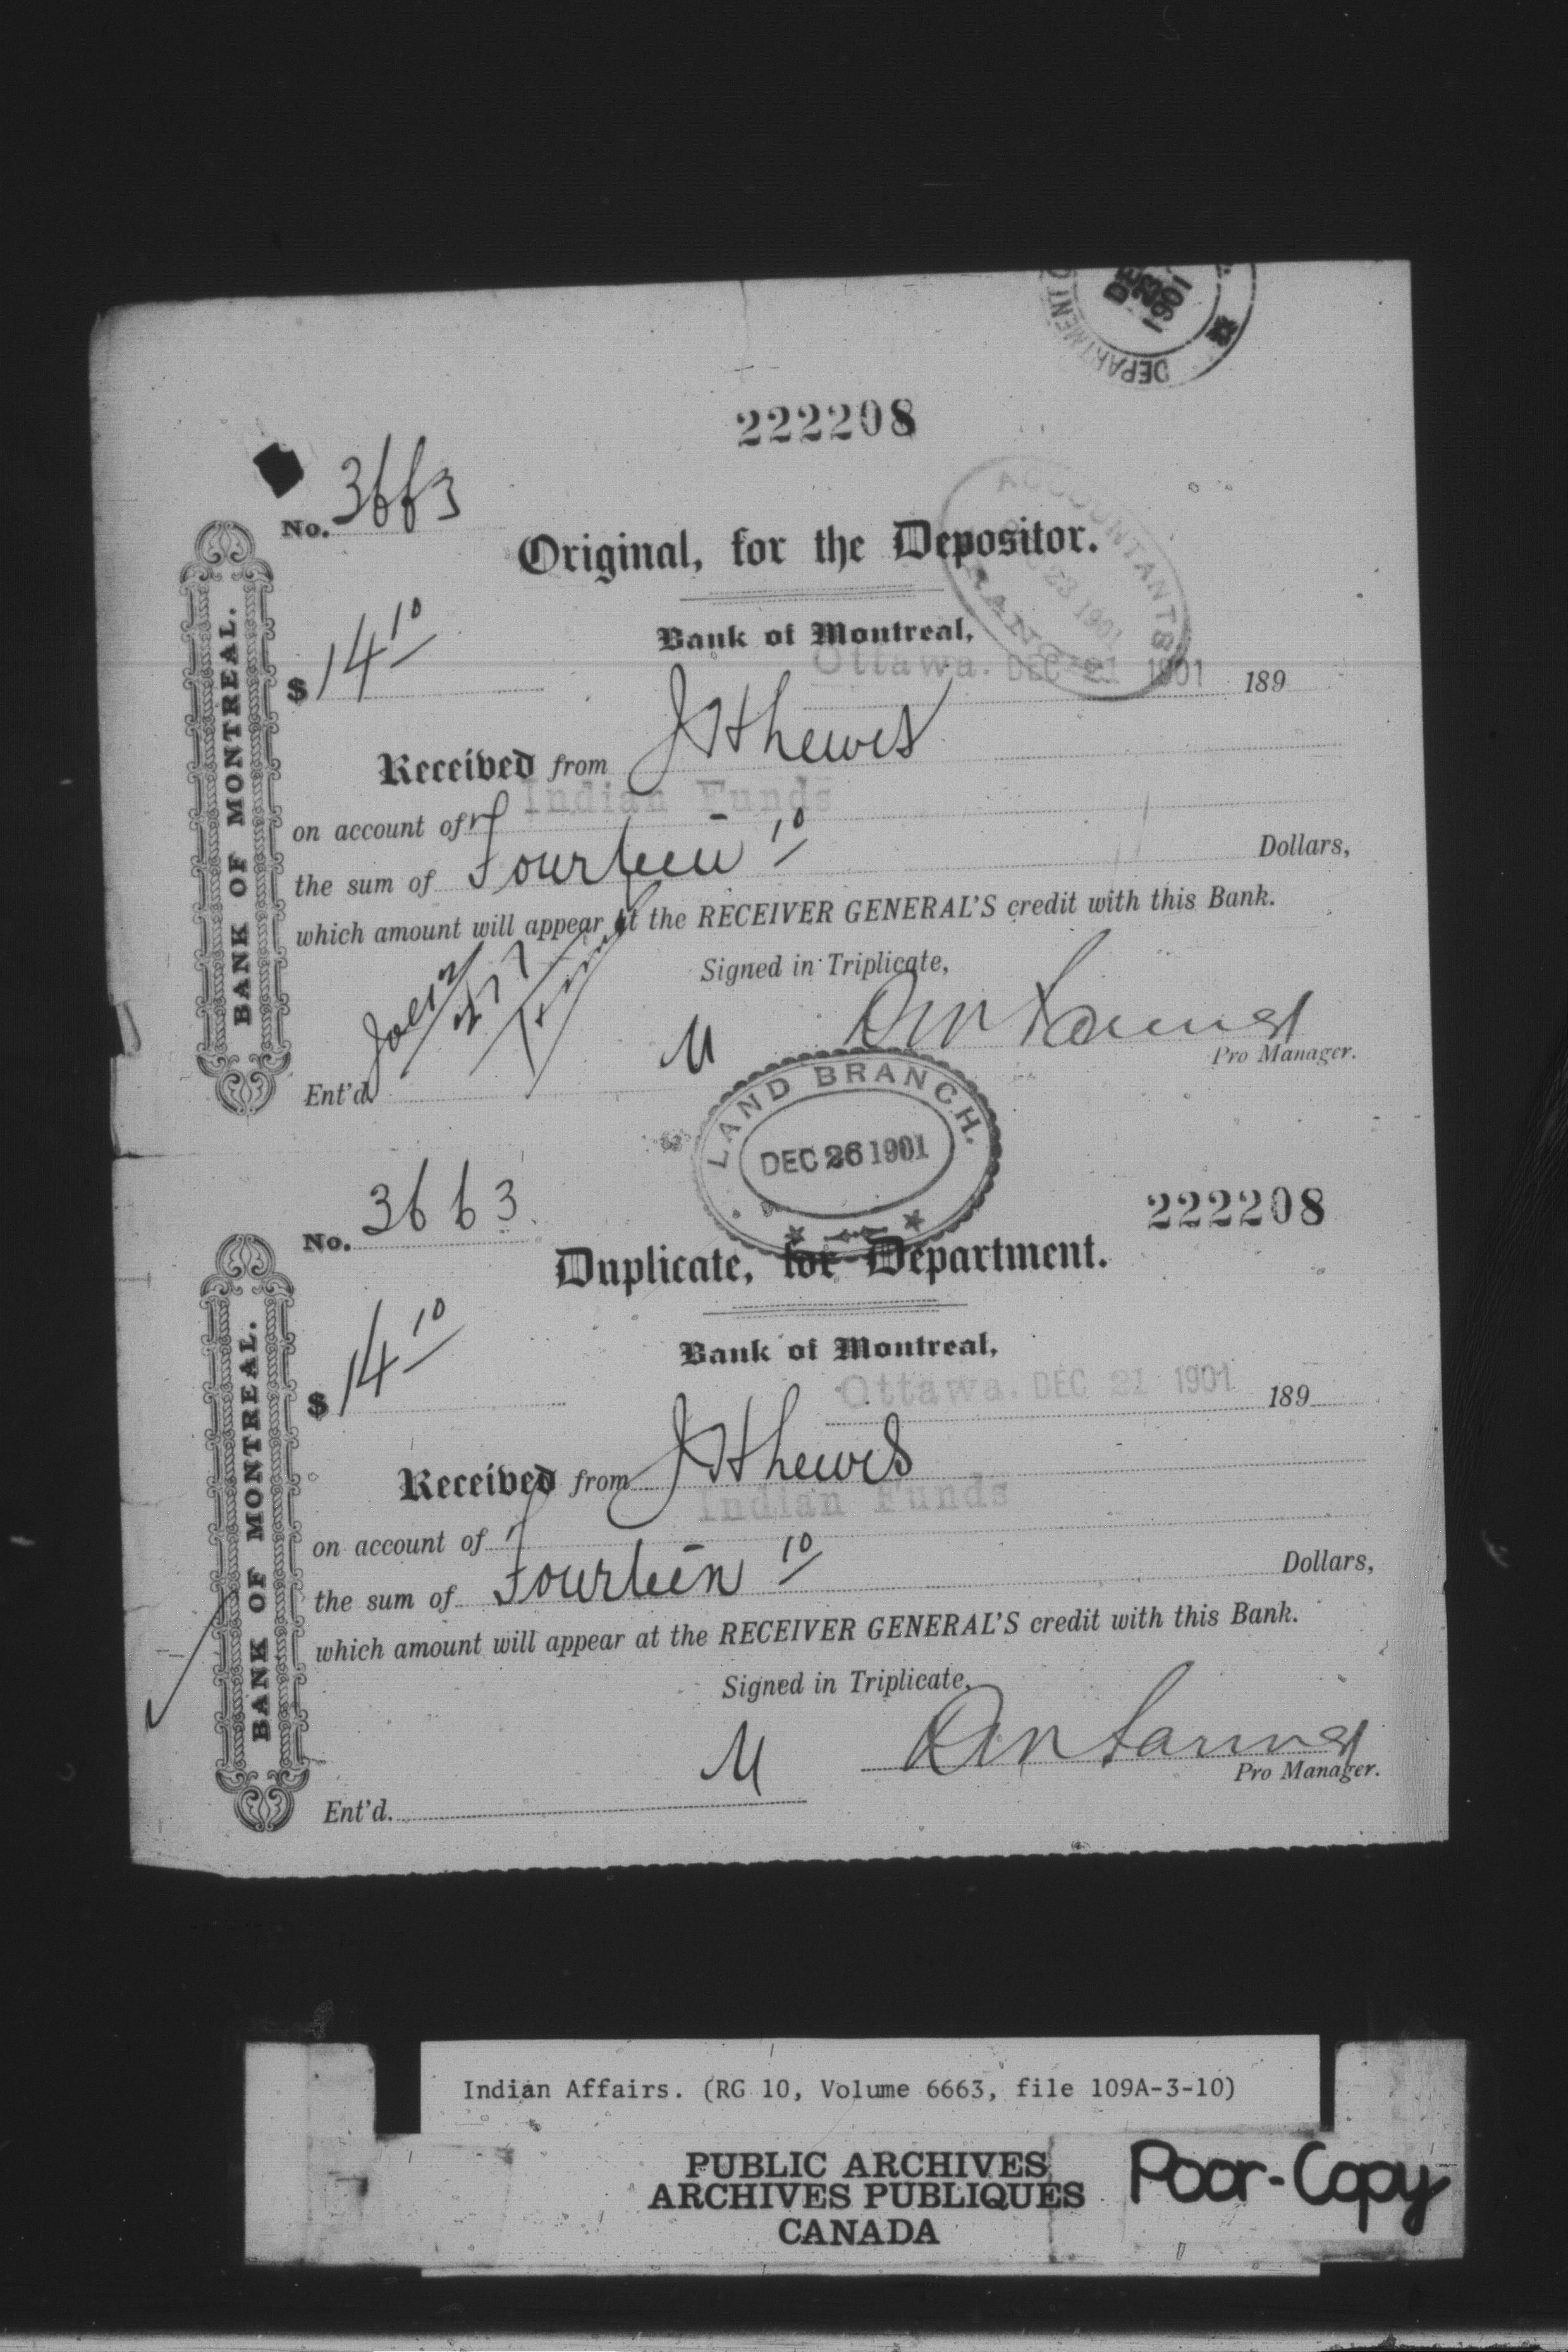 DEPARTMENT O
DE
23
1901
222208
No. 3663
ACCOUNTANTS
23 1901
Original, for the Depositor.
Bank of Montreal,
$ 14 10
Ottawa. DEC 21 1901 189
Received from J H Lewis
Indian Funds
on account of
the sum of Fourteen 10 Dollars,
which amount will appear at the RECEIVER GENERAL'S credit with this Bank.
Signed in Triplicate,
M
Pro Manager.
Ent'd
BANK OF MONTREAL.
LAND BRANCH.
DEC 26 1901
No. 3663
222208
Duplicate, for Department.
$ 14 10
Bank of Montreal,
Ottawa. DEC 21 1901 189
Received from J H Lewis
Indian Funds
on account of
the sum of Fourteen 10 Dollars,
which amount will appear at the RECEIVER GENERAL'S credit with this Bank.
Signed in Triplicate,
M
Pro Manager.
Ent'd.
BANK OF MONTREAL.
Indian Affairs. (RG 10, Volume 6663, file 109A-3-10)
PUBLIC ARCHIVES
ARCHIVES PUBLIQUES
CANADA
Poor-Copy